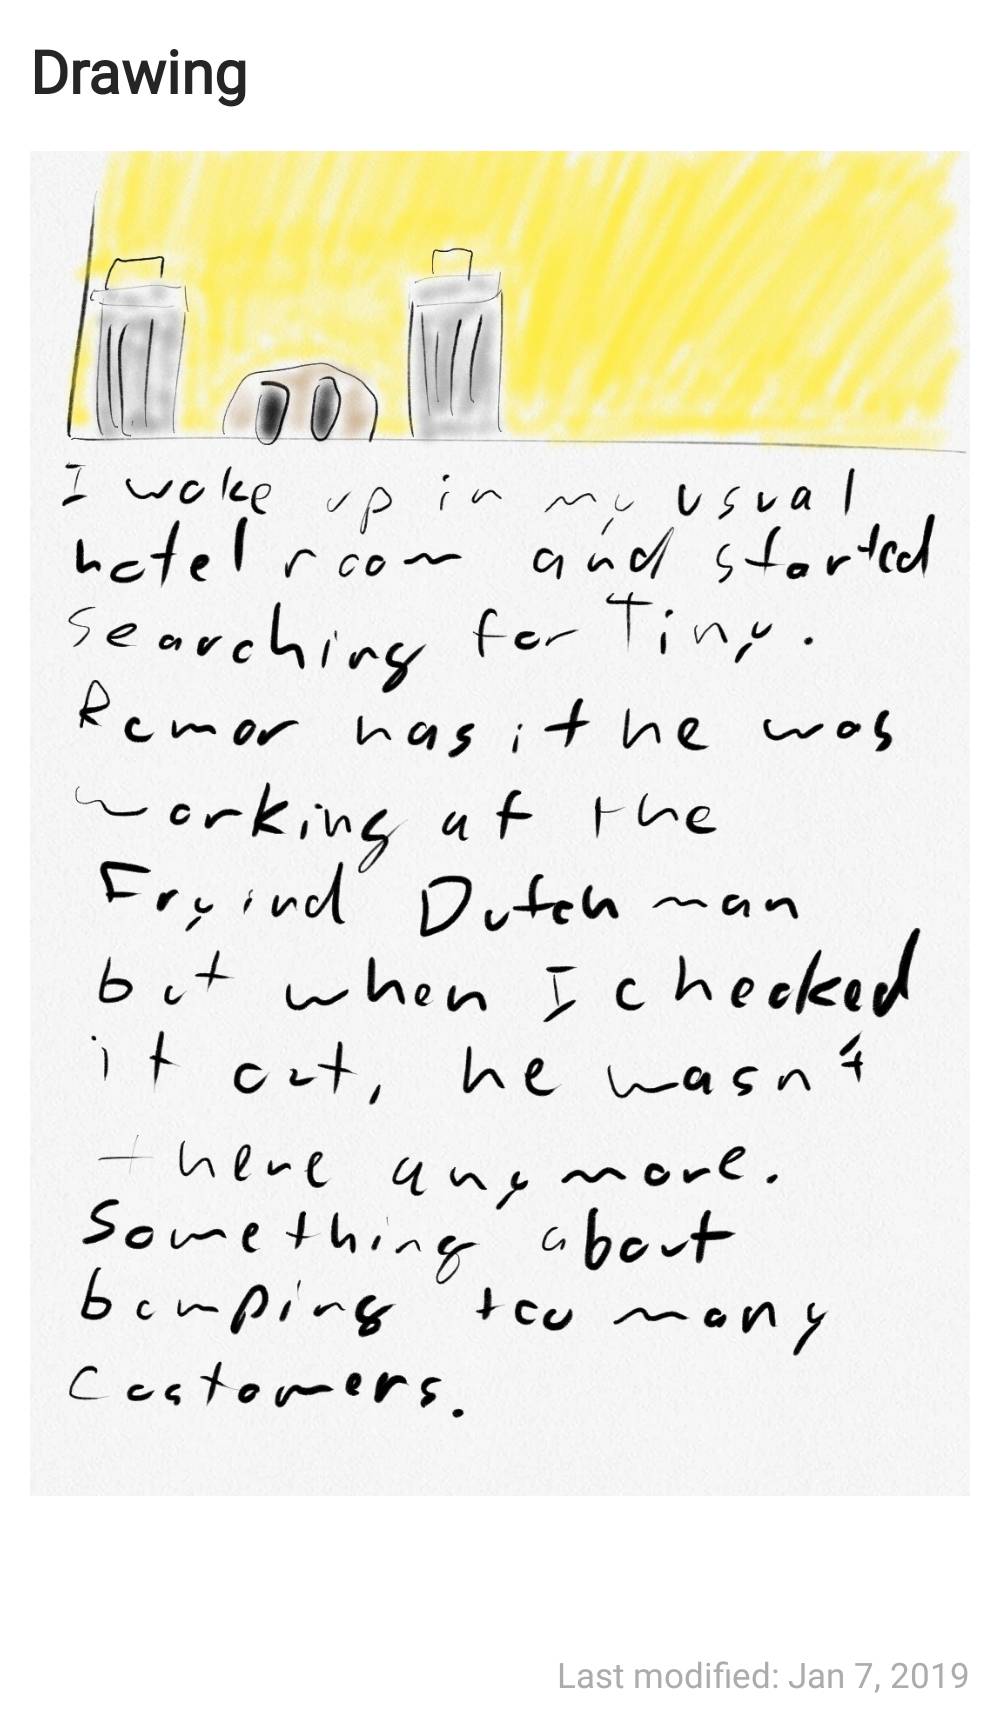 Drawing
I woke up in my usual
hotel room and started
searching for Tiny.
Rumor has it he was
working at the
Fryind Dutchman
but when I checked
it out, he wasn't
there anymore.
Something about
bumping too many
customers.
Last modified: Jan 7, 2019